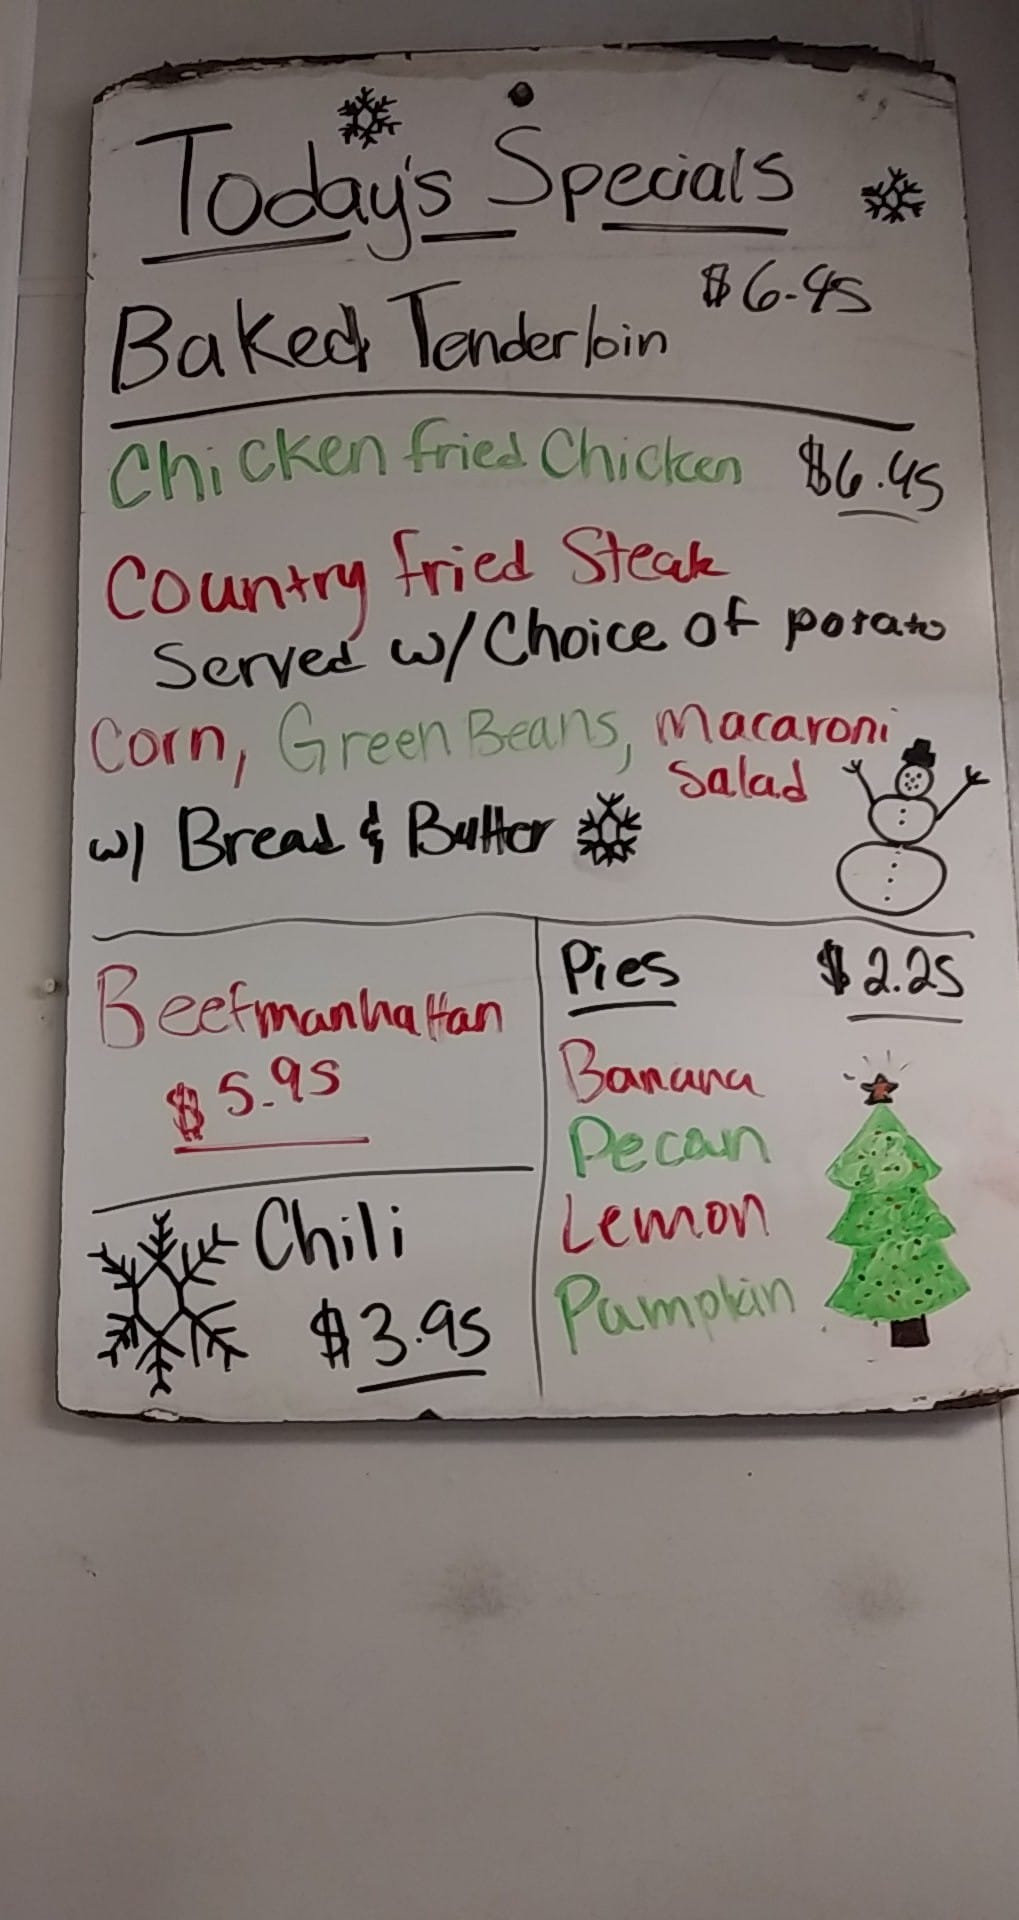 Today's Specials
Baked Tenderloin $6.45
Chicken fried Chicken $6.45
Country fried Steak
Served w/ Choice of potato
Corn, Green Beans, Macaroni
Salad
w/ Bread & Butter
Beefmanhattan
$5.95
Chili
$3.95
Pies $2.25
Banana
Pecan
Lemon
Pumpkin